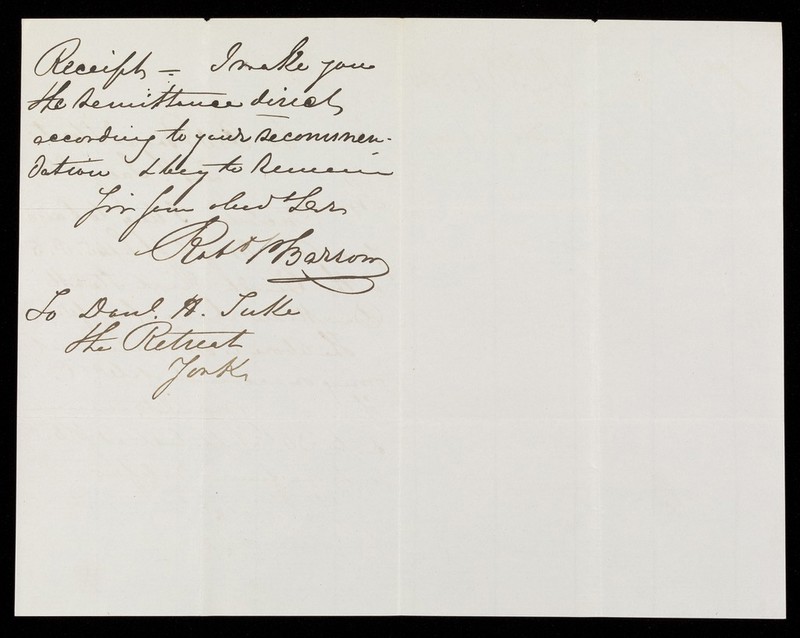 Receipt — I make you
the remittance direct
according to your recommen-
dation & beg to remain
Sir your obed Ser
Robt Barrow
To Danl. H. Tuke
the Retreat
York